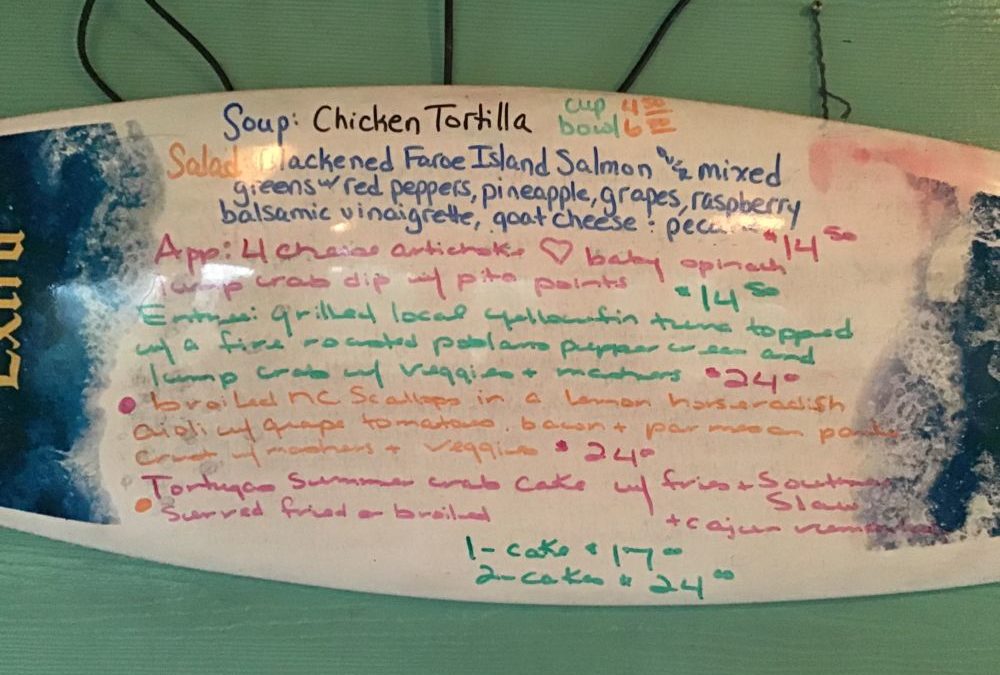 Extra
Soup: Chicken Tortilla cup 4.50
bowl 6
Salad: Blackened Faroe Island Salmon mixed
greens w/ red peppers, pineapple, grapes, raspberry
balsamic vinaigrette, goat cheese : $14 50
App: 4 cheese artichoke ♡ baby spinach
lump crab dip w/ pita points $14 50
Entree: grilled local yellowfin tuna topped
w/ a fire roasted poblano pepper cream and
lump crab w/ veggies + mashers $24
broiled NC Scallops in a lemon horseradish
aioli w/ grape tomatoes, bacon + parmesan panko
crust w/ mashers + veggies $24
Tortugas Summer crab cake w/ fries + Southern
Slaw
Served fried or broiled + cajun remoulade
1- cake $17 00
2- cakes $24 00